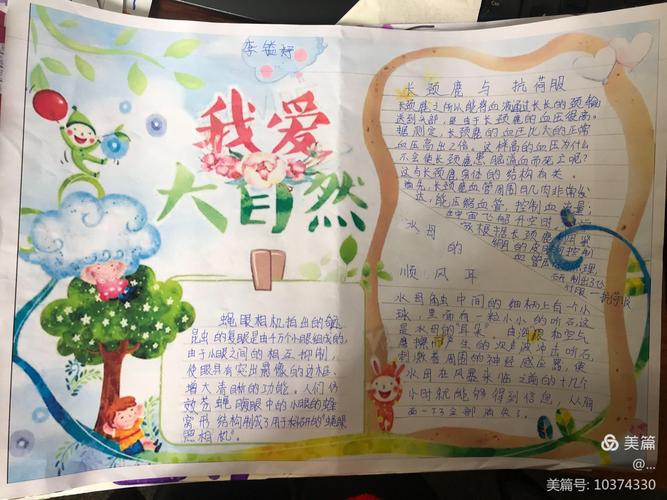 李
我爱
大自然
蝇眼相机拍出的
昆虫的复眼是由4万个小眼组成的,
由于小眼之间的相互抑制,
使眼具有突出景像的边框,
增大清目标的功能。人们仿
效苍蝇 眼中的小眼的蜂
窝形结构制成了用于科研的"蝇眼
照相机"。
长颈鹿与抗荷服
长颈鹿之所以能将血液通过长长的颈输
送到头部,是由于长颈鹿的血压很高。
据测定,长颈鹿的血压比人的正常
血压高出2倍。这样高的血压为什么
不会使长颈鹿患脑溢血而死亡呢?
这与长颈鹿身体的结构有关。
首先,长颈鹿血管周围肌肉非常发
达,能压缩血管,控制血流量,
水母
的
顺风耳
水母触 中间的细柄上有一个小
球,里面有一粒小小的听石,这
是水母的"耳朵"。由海浪和空气
摩擦而产生的次声波冲击听石,
刺激着周围的神经感应器,使
水母在风暴来临之前的十几个
小时就能够得到信息,从海
面一下子全部消失了。
美篇
@...
美篇号: 10374330